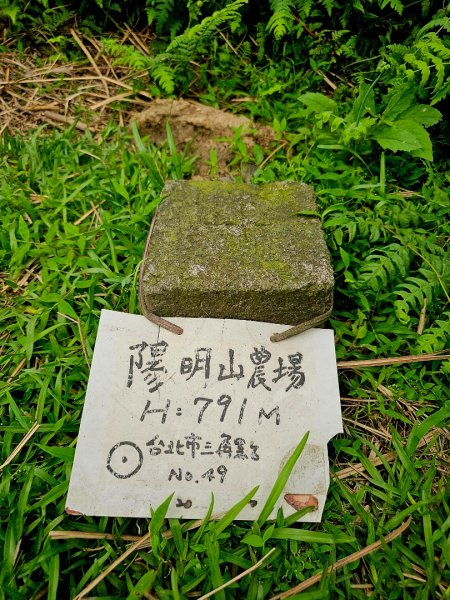 陽明山農場
H:791M
台北市三角點
No.49